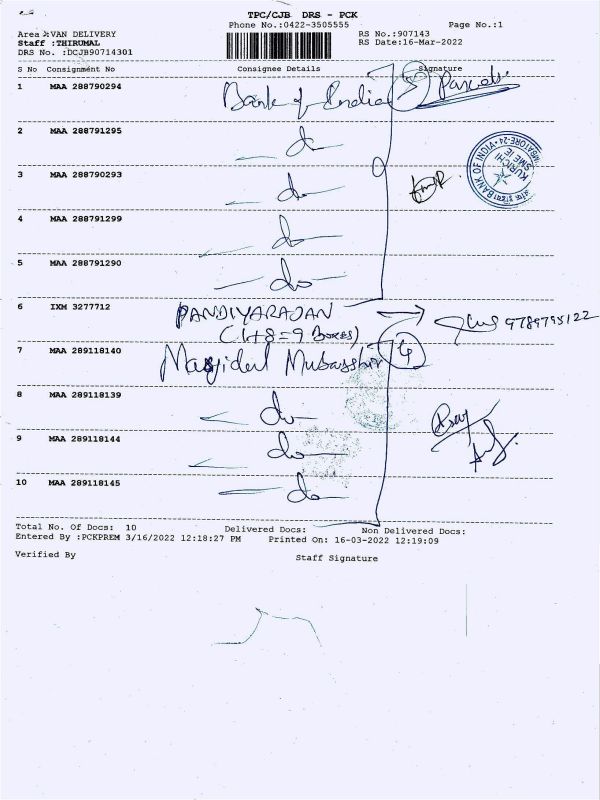 TPC/CJB DRS - PCK
Phone No.:0422-3505555 Page No.:1
Area :VAN DELIVERY RS No.:907143
Staff :THIRUMAL RS Date:16-Mar-2022
DRS No. :DCJB90714301
S No Consignment No Consignee Details Signature
1 MAA 288790294 Bank of India 5 Parcels
2 MAA 288791295 do
3 MAA 288790293 do
4 MAA 288791299 do
5 MAA 288791290 do
BANK OF INDIA
KURICHI
6 IXM 3277712 PANDIYARAJAN 9789795122
(1+8=9 Boxes)
7 MAA 289118140 Masjidul Mubasshir 4
8 MAA 289118139 do
9 MAA 289118144 do
10 MAA 289118145 do
Total No. Of Docs: 10 Delivered Docs: Non Delivered Docs:
Entered By :PCKPREM 3/16/2022 12:18:27 PM Printed On: 16-03-2022 12:19:09
Verified By Staff Signature